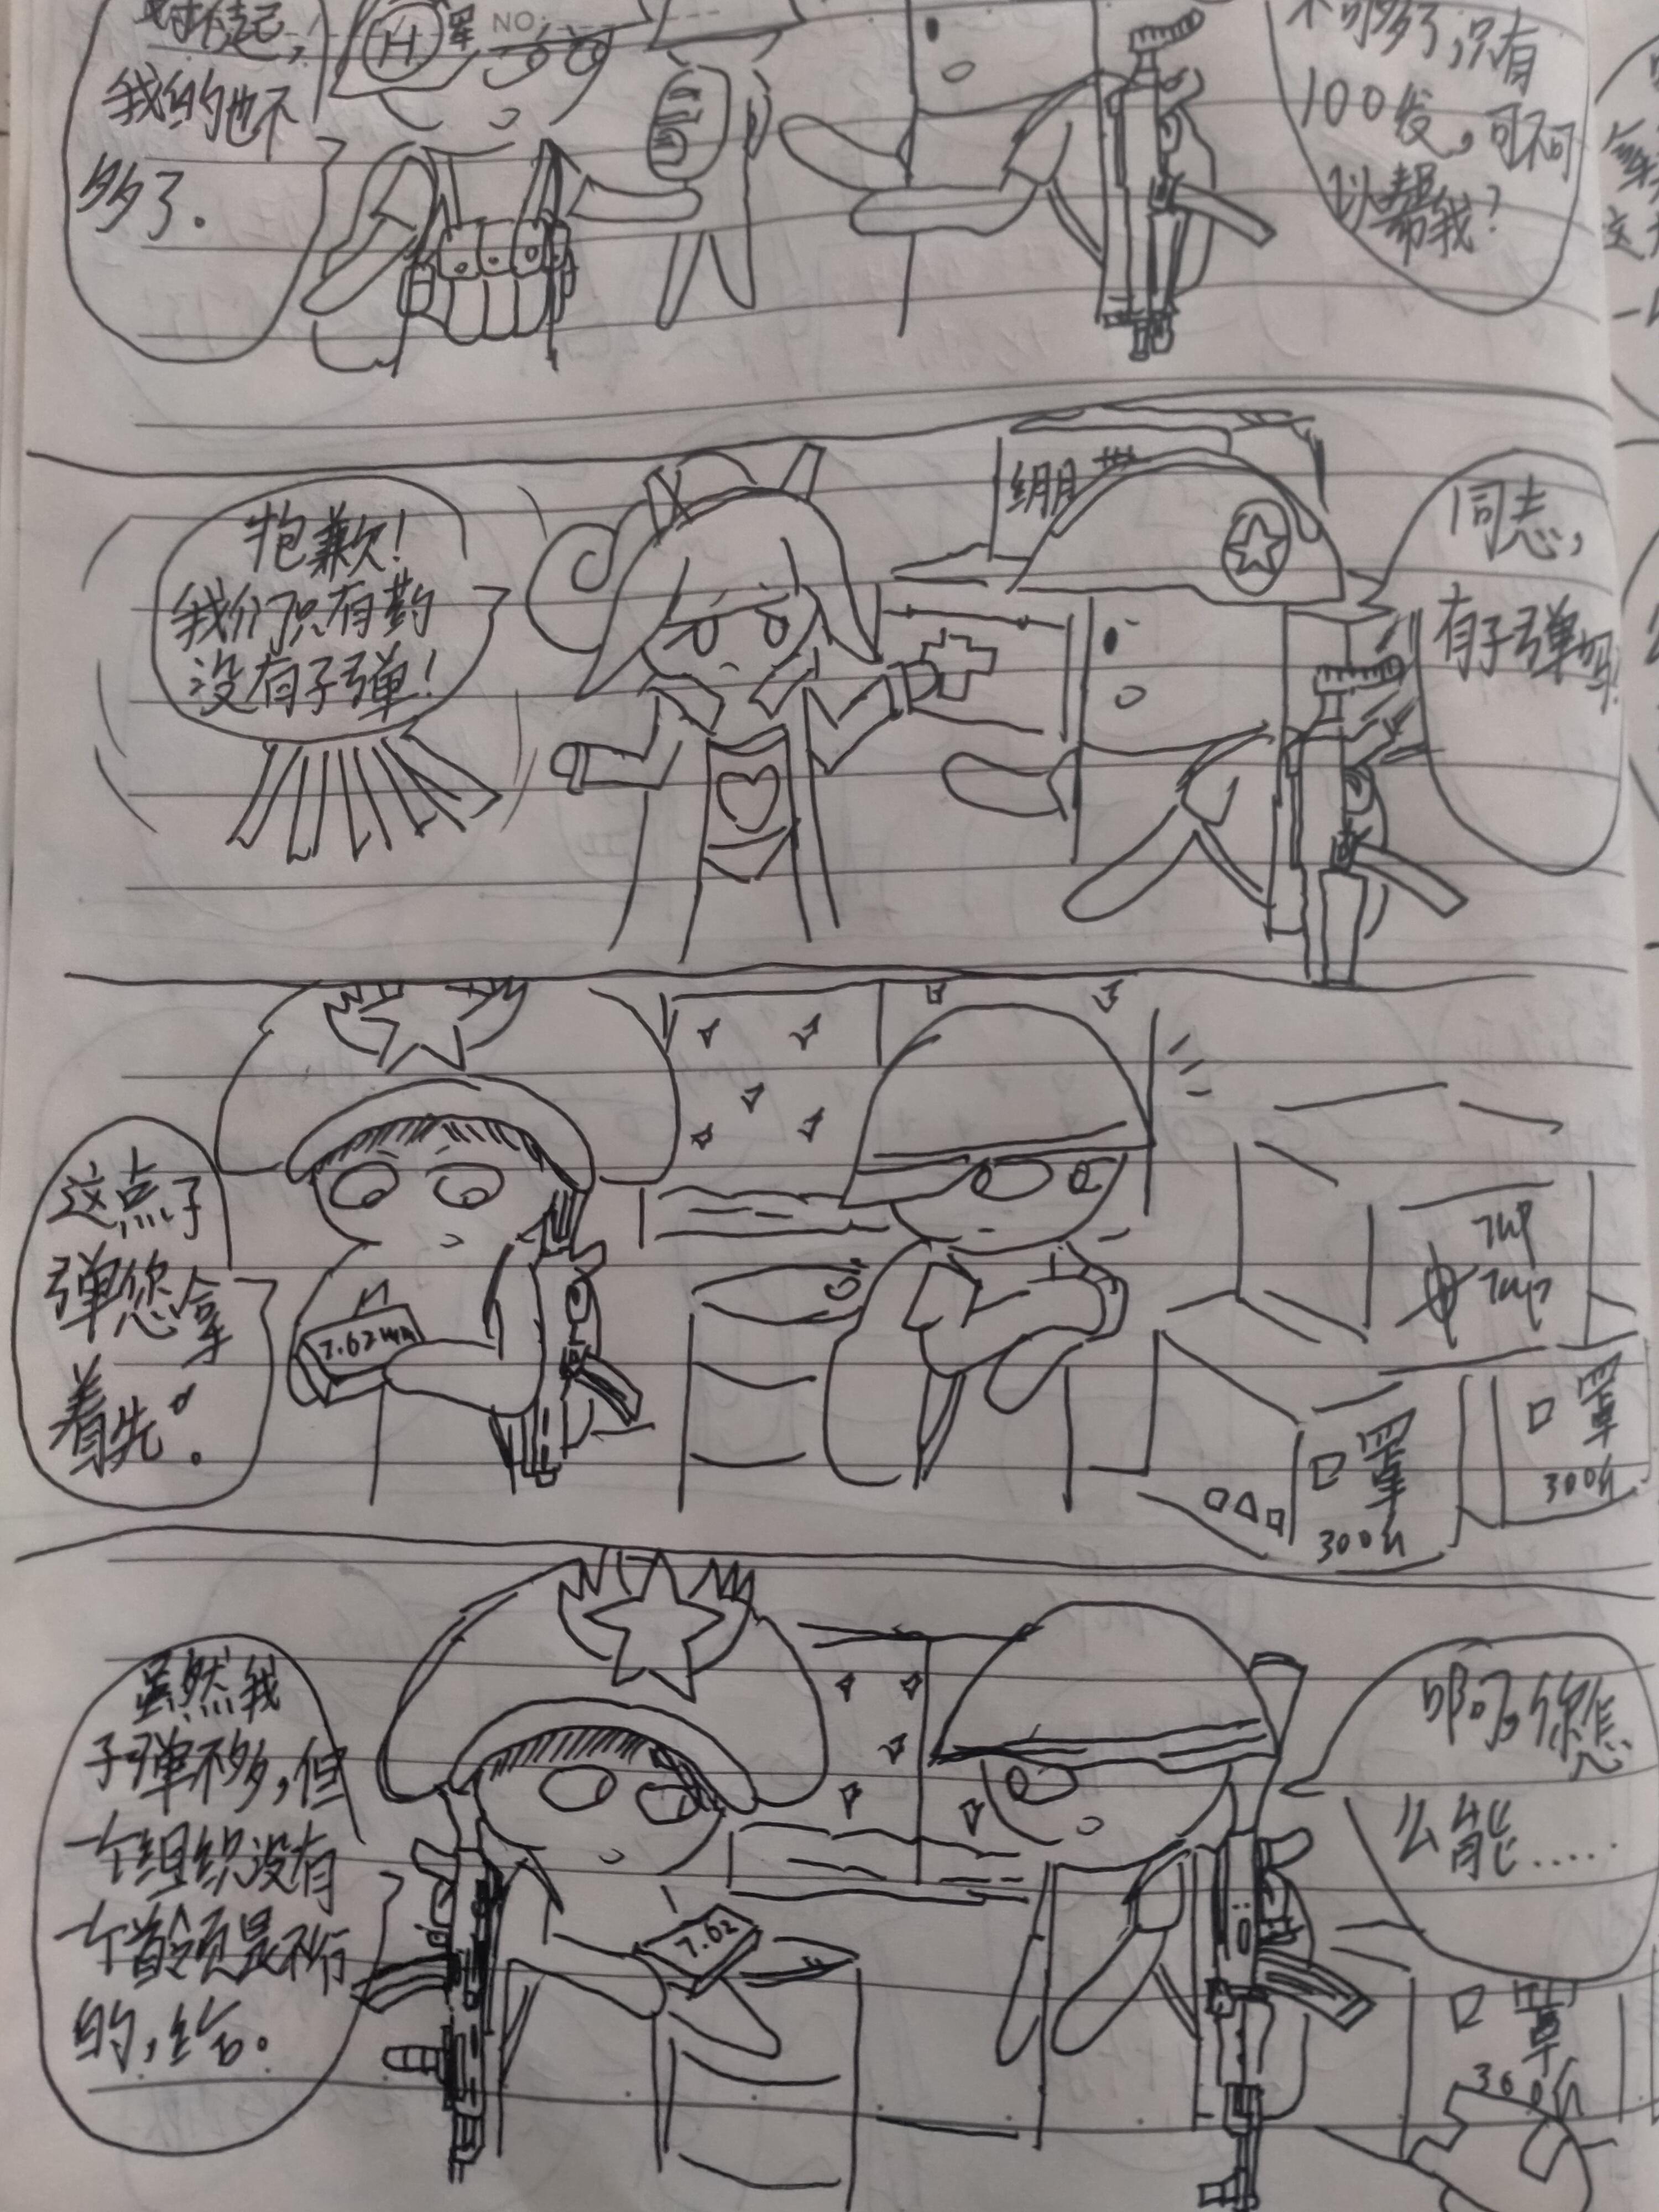 对不起,
我的也不
多了.
H
罩
NO.
不多了,只有
100发,可不可
以帮我?
抱歉!
我们只有药
没有子弹!
绷
同志,
有子弹吗
这点子
弹您拿
着先。
7.62mm
口罩
300
口罩
300
虽然我
子弹不多,但
一个组织没有
一个首领是不行
的,给。
7.62
啊,你怎
么能.....
口罩
300